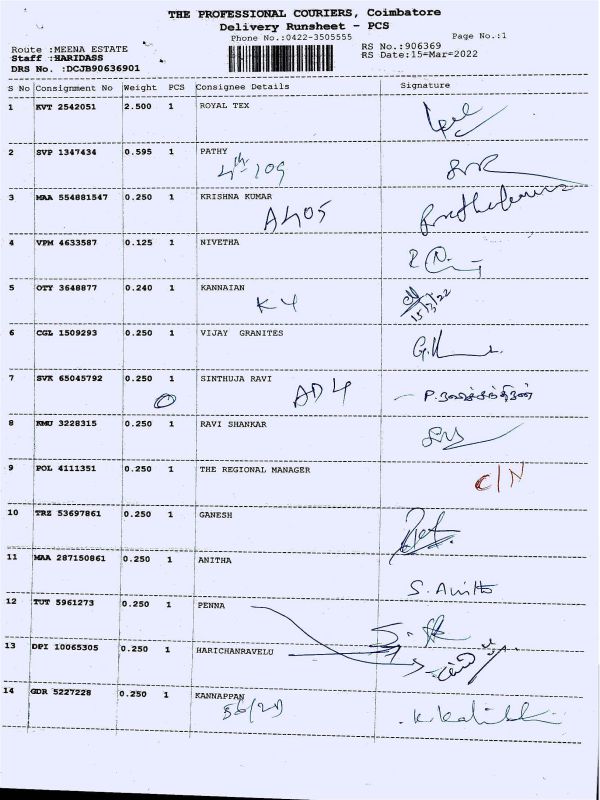 THE PROFESSIONAL COURIERS, Coimbatore
Delivery Runsheet - PCS
Phone No.:0422-3505555
Page No.:1
Route :MEENA ESTATE
RS No.:906369
Staff :HARIDASS
RS Date:15-Mar-2022
DRS No. :DCJB90636901
S No Consignment No Weight PCS Consignee Details Signature
1 KVT 2542051 2.500 1 ROYAL TEX
2 SVP 1347434 0.595 1 PATHY
4th-109
3 MAA 554881547 0.250 1 KRISHNA KUMAR
A405
4 VPM 4633587 0.125 1 NIVETHA
5 OTY 3648877 0.240 1 KANNAIAN
K4 15/3/22
6 CGL 1509293 0.250 1 VIJAY GRANITES
7 SVK 65045792 0.250 1 SINTHUJA RAVI
AD4
8 KMU 3228315 0.250 1 RAVI SHANKAR
9 POL 4111351 0.250 1 THE REGIONAL MANAGER
C/N
10 TRZ 53697861 0.250 1 GANESH
11 MAA 287150861 0.250 1 ANITHA
S. Anitha
12 TUT 5961273 0.250 1 PENNA
13 DPI 10065305 0.250 1 HARICHANRAVELU
14 GDR 5227228 0.250 1 KANNAPPAN